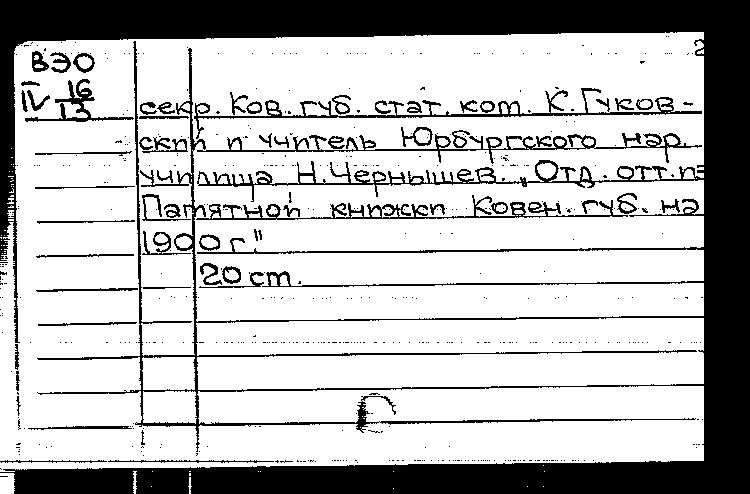 ВЭО
IV 16/13
2
секр. Ков. губ. стат. ком. К. Гуков-
ский и учитель Юрбургского нар.
училища Н. Чернышев. „Отд. отт. из
Памятной книжки Ковен. губ. на
1900 г."
20 ст.